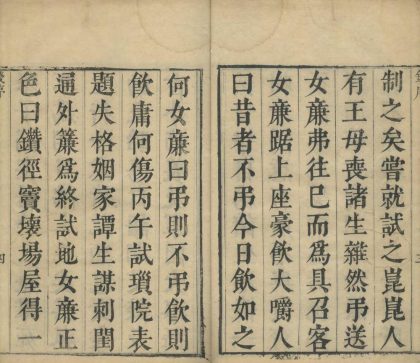 制之矣嘗就試之崑崑人
有王母喪諸生雜然弔送
女廉弗往已而爲具召客
女廉踞上座豪飲大嚼人
曰昔者不弔今日飲如之
何女廉曰弔則不弔飲則
飲庸何傷丙午試瑣院表
題失格姻家譚生謀刺閨
逼外簾爲終試地女廉正
色曰鑽徑竇壞場屋得一